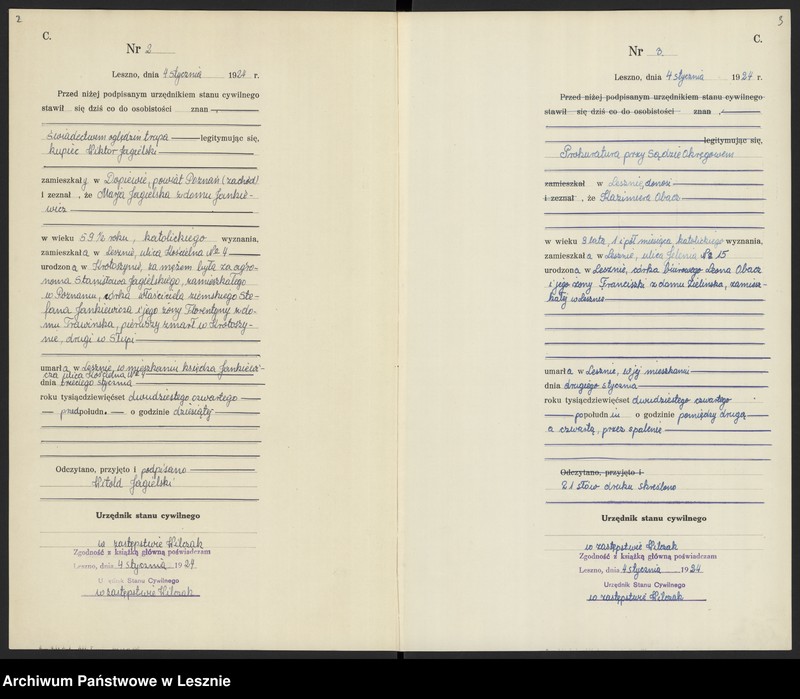 2
C.
Nr 2
Leszno, dnia 4 stycznia 1924 r.
Przed niżej podpisanym urzędnikiem stanu cywilnego
stawił się dziś co do osobistości znan
świadectwem oględzin trupa legitymując się,
kupiec Wiktor Jagielski
zamieszkały w Dopiewie, powiat Poznań (zachód)
i zeznał, że Marja Jagielska z domu Jankie-
wicz
w wieku 59 ½ roku, katolickiego wyznania,
zamieszkała w Lesznie, ulica Kościelna № 4
urodzona w Krotoszynie, za mężem była za agro-
noma Stanisława Jagielskiego, zamieszkałego
w Poznaniu, córka właściciela ziemskiego Ste-
fana Jankiewicza i jego żony Florentyny z do-
mu Trawińska, pierwszy zmarł w Krotoszy-
nie, drugi w Słupi
umarła w Lesznie, w mieszkaniu księdza Jankiewi-
cza ulica Kościelna № 4
dnia trzeciego stycznia
roku tysiącdziewięćset dwudziestego czwartego
przedpołudn. o godzinie dziesiątej
Odczytano, przyjęto i podpisano
Witold Jagielski
Urzędnik stanu cywilnego
w zastępstwie Wilczak
Zgodność z książką główną poświadczam
Leszno, dnia 4 stycznia 1924.
Urzędnik Stanu Cywilnego
w zastępstwie Wilczak
3
C.
Nr 3.
Leszno, dnia 4 stycznia 1924 r.
Przed niżej podpisanym urzędnikiem stanu cywilnego
stawił się dziś co do osobistości znan
legitymując się,
Prokuratura przy Sądzie Okręgowem
zamieszkał w Lesznie, donosi
i zeznał, że Kazimiera Obacz
w wieku 3 lata, 1 i pół miesiąca katolickiego wyznania,
zamieszkała w Lesznie, ulica Zielona № 15
urodzona w Lesznie, córka biurowego Leona Obacz
i jego żony Franciszki z domu Zielińska, zamiesz-
kały w Lesznie
umarła w Lesznie, w jej mieszkaniu
dnia drugiego stycznia
roku tysiącdziewięćset dwudziestego czwartego
popołudniu o godzinie pomiędzy drugą
a czwartą, przez spalenie
Odczytano, przyjęto i
21 słów druku skreślono
Urzędnik stanu cywilnego
w zastępstwie Wilczak
Zgodność z książką główną poświadczam
Leszno, dnia 4 stycznia 1924.
Urzędnik Stanu Cywilnego
w zastępstwie Wilczak
Archiwum Państwowe w Lesznie